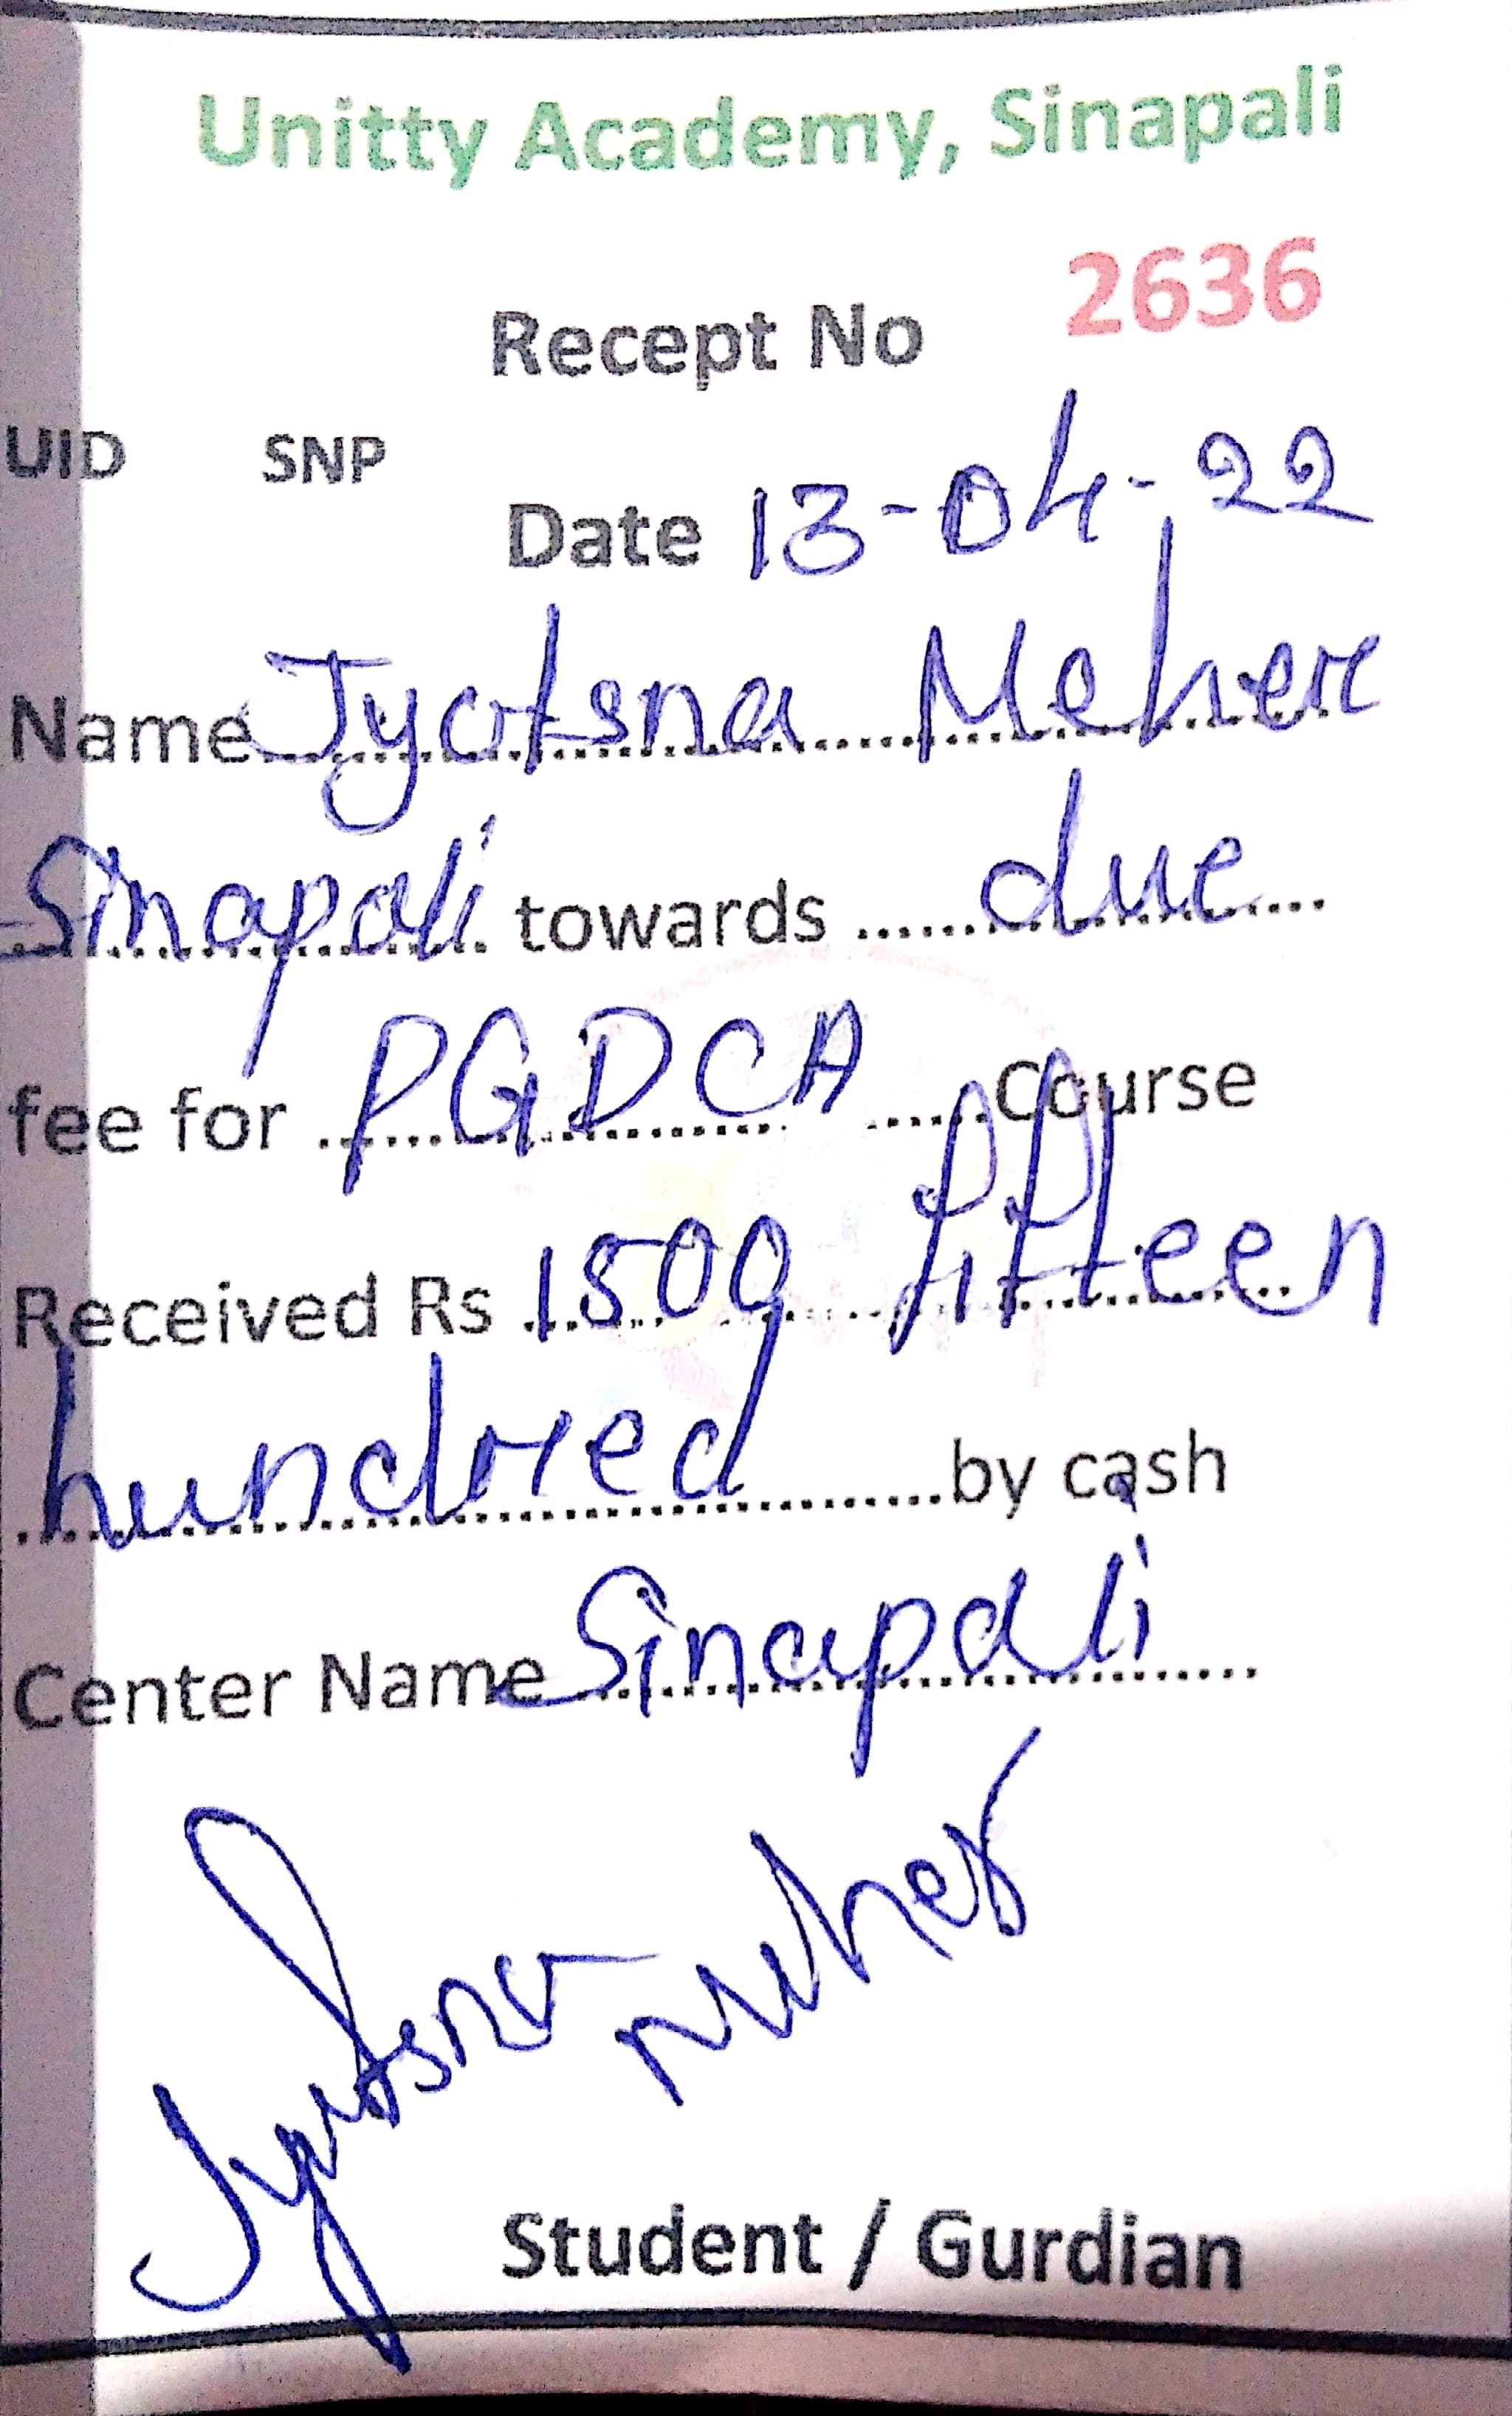 Unitty Academy, Sinapali
Recept No 2636
UID SNP
Date 13-04-22
Name Jyotsna Meher
Sinapali towards due
fee for PGDCA Course
Received Rs 1500 fifteen
hundred by cash
Center Name Sinapali
Jyotsna Meher
Student / Gurdian